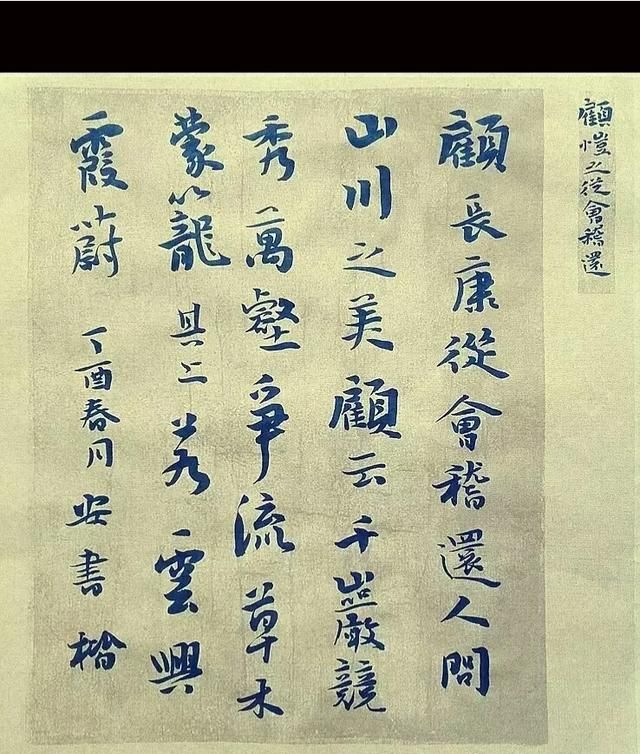 顧愷之從會稽還
顧長康從會稽還人問
山川之美顧云千巖競
秀萬壑爭流草木
蒙籠其上若雲興
霞蔚 丁酉春月安書楷